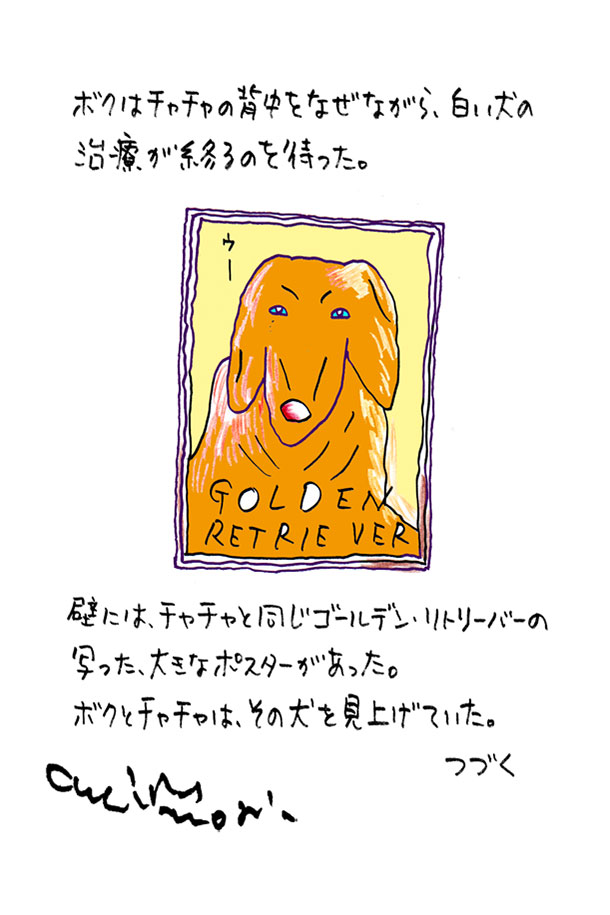 ボクはチャチャの背中をなぜながら、白い犬の
治療が終るのを待った。
ウー
GOLDEN
RETRIEVER
壁には、チャチャと同じゴールデン・リトリーバーの
写った、大きなポスターがあった。
ボクとチャチャは、その犬を見上げていた。
つづく